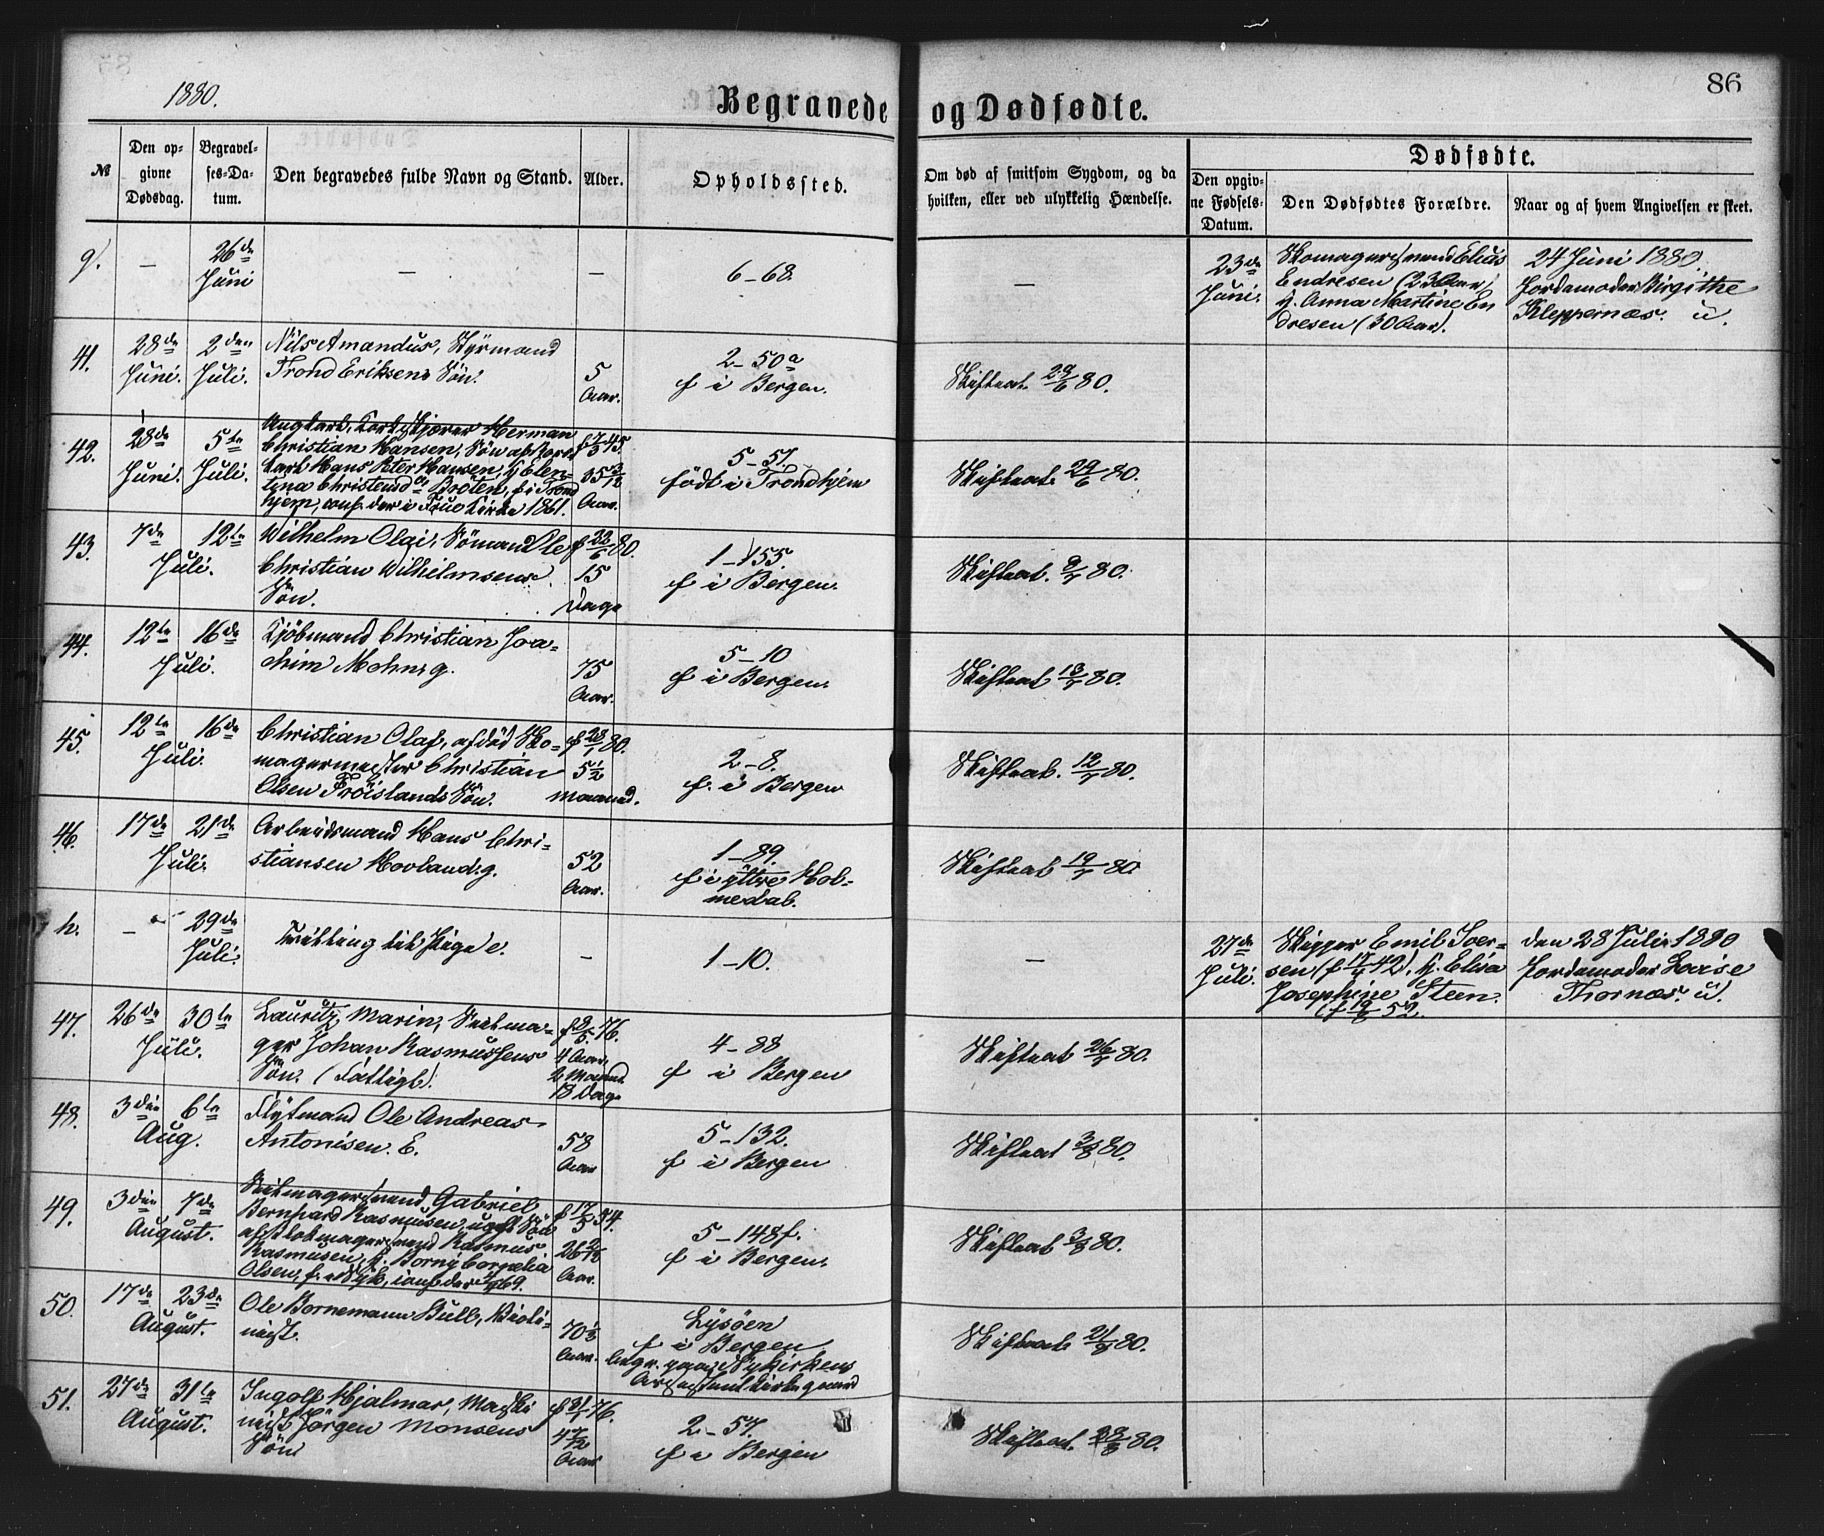 86
1880.
Begravede og Dødfødte.
№
Den op-
givne
Dødsdag.
Begravel-
ses-Da-
tum.
Den begravedes fulde Navn og Stand.
Alder.
Opholdssted.
Om død af smitsom Sygdom, og da
hvilken, eller ved ulykkelig Hændelse.
Dødfødte.
Den opgiv-
ne Fødsels-
Datum.
Den Dødfødtes Forældre.
Naar og af hvem Angivelsen er skeet.
g. — 26de Juni — — 6-68 —
23de Juni.
Skomagersvend Elias
Endresen (23 Aar)
h. Anna Martine En
dresen (30 Aar).
24 Juni 1880
Jordemoder Birgithe
Kleppernæs. u.
41. 28de Juni. 2den Juli.
Nils Amandus, Styrmand
Trond Eriksens Søn.
5 Aar.
2-50a
f i Bergen.
Skifteat. 29/6 80.
42. 28de Juni. 5te Juli.
Ungkarl, Korkskjærer Herman
Christian Hansen, Søn af
Hans Peter Hansen, h. Elen
Christensd. Bröten, f. i Trond
hjem, conf. der i Frue Kirke 1861.
35 3/12 Aar.
5-51.
födt i Trondhjem
Skifteat. 29/6 80.
43. 7de 12te Juli.
Wilhelm Olai, Sömand Ole
Christian Wilhelmsens
Søn.
f 22/6 80.
15
Dage
1-155.
f i Bergen.
Skifteat. 9/7 80.
44. 12te 16de Juli.
Kjöbmand Christian Joa-
chim Mohn g.
75
Aar.
5-10
f i Bergen.
Skifteat 13/7 80.
45. 12te 16de Juli.
Christian Olaf, afdöd Sko-
magermester Christian
Olsen Fröislands Søn.
f 28/1 80.
5 1/2
maaned.
2-8.
f. i Bergen
Skifteat. 12/7 80.
46. 17de 21de Juli.
Arbeidsmand Hans Chri-
stiansen Hovland. g.
52
Aar.
1-89.
f i yttre Hol-
medal.
Skifteat 19/7 80.
h. — 29de Juli.
Tvilling til Pige e.
—
1-10.
—
27de Juli.
Skipper Emil Iver-
sen (f 17/4 42), h. Elisa
Josephine Steen.
(f 19/8 52.
den 28 Juli 1880
Jordemoder Lovise
Thornæs. u.
47. 26de 30te Juli.
Lauritz Marin, Seilma-
ger Johan Rasmussens
Søn. (Fattigl).
f 8/5 76.
4 Aar
2 Maaned.
18 Dage
4-88
f i Bergen
Skifteat 26/7 80.
48. 3die 6te Aug.
Flytmand Ole Andreas
Antonisen. E.
58
Aar
5-132.
f i Bergen
Skifteat 3/8 80.
49. 3die 7de August.
Seilmagersvend Gabriel
Bernhard Rasmusen, ugift Søn
af Blokmagersvend Rasmus
Rasmusen, h. Borny Cornelia
Olsen, f. i Nyk, conf. der 69.
f 17/5 54.
26 2/12
Aar.
5-148f.
f i Bergen.
Skifteat 3/8 80.
50. 17de 23de August.
Ole Bornemann Bull, Violi-
nist.
70 1/2
Aar.
Lysöen
f i Bergen
begr. paa Nykirkens
Assistent Kirkegaard
Skifteat 21/8 80.
51. 27de 31te August.
Ingolf Hjalmar, Maski
nist Jörgen Monsens
Søn
f 21/1 76.
4 7/12
Aar
2-57.
f i Bergen
Skifteat. 28/8 80.